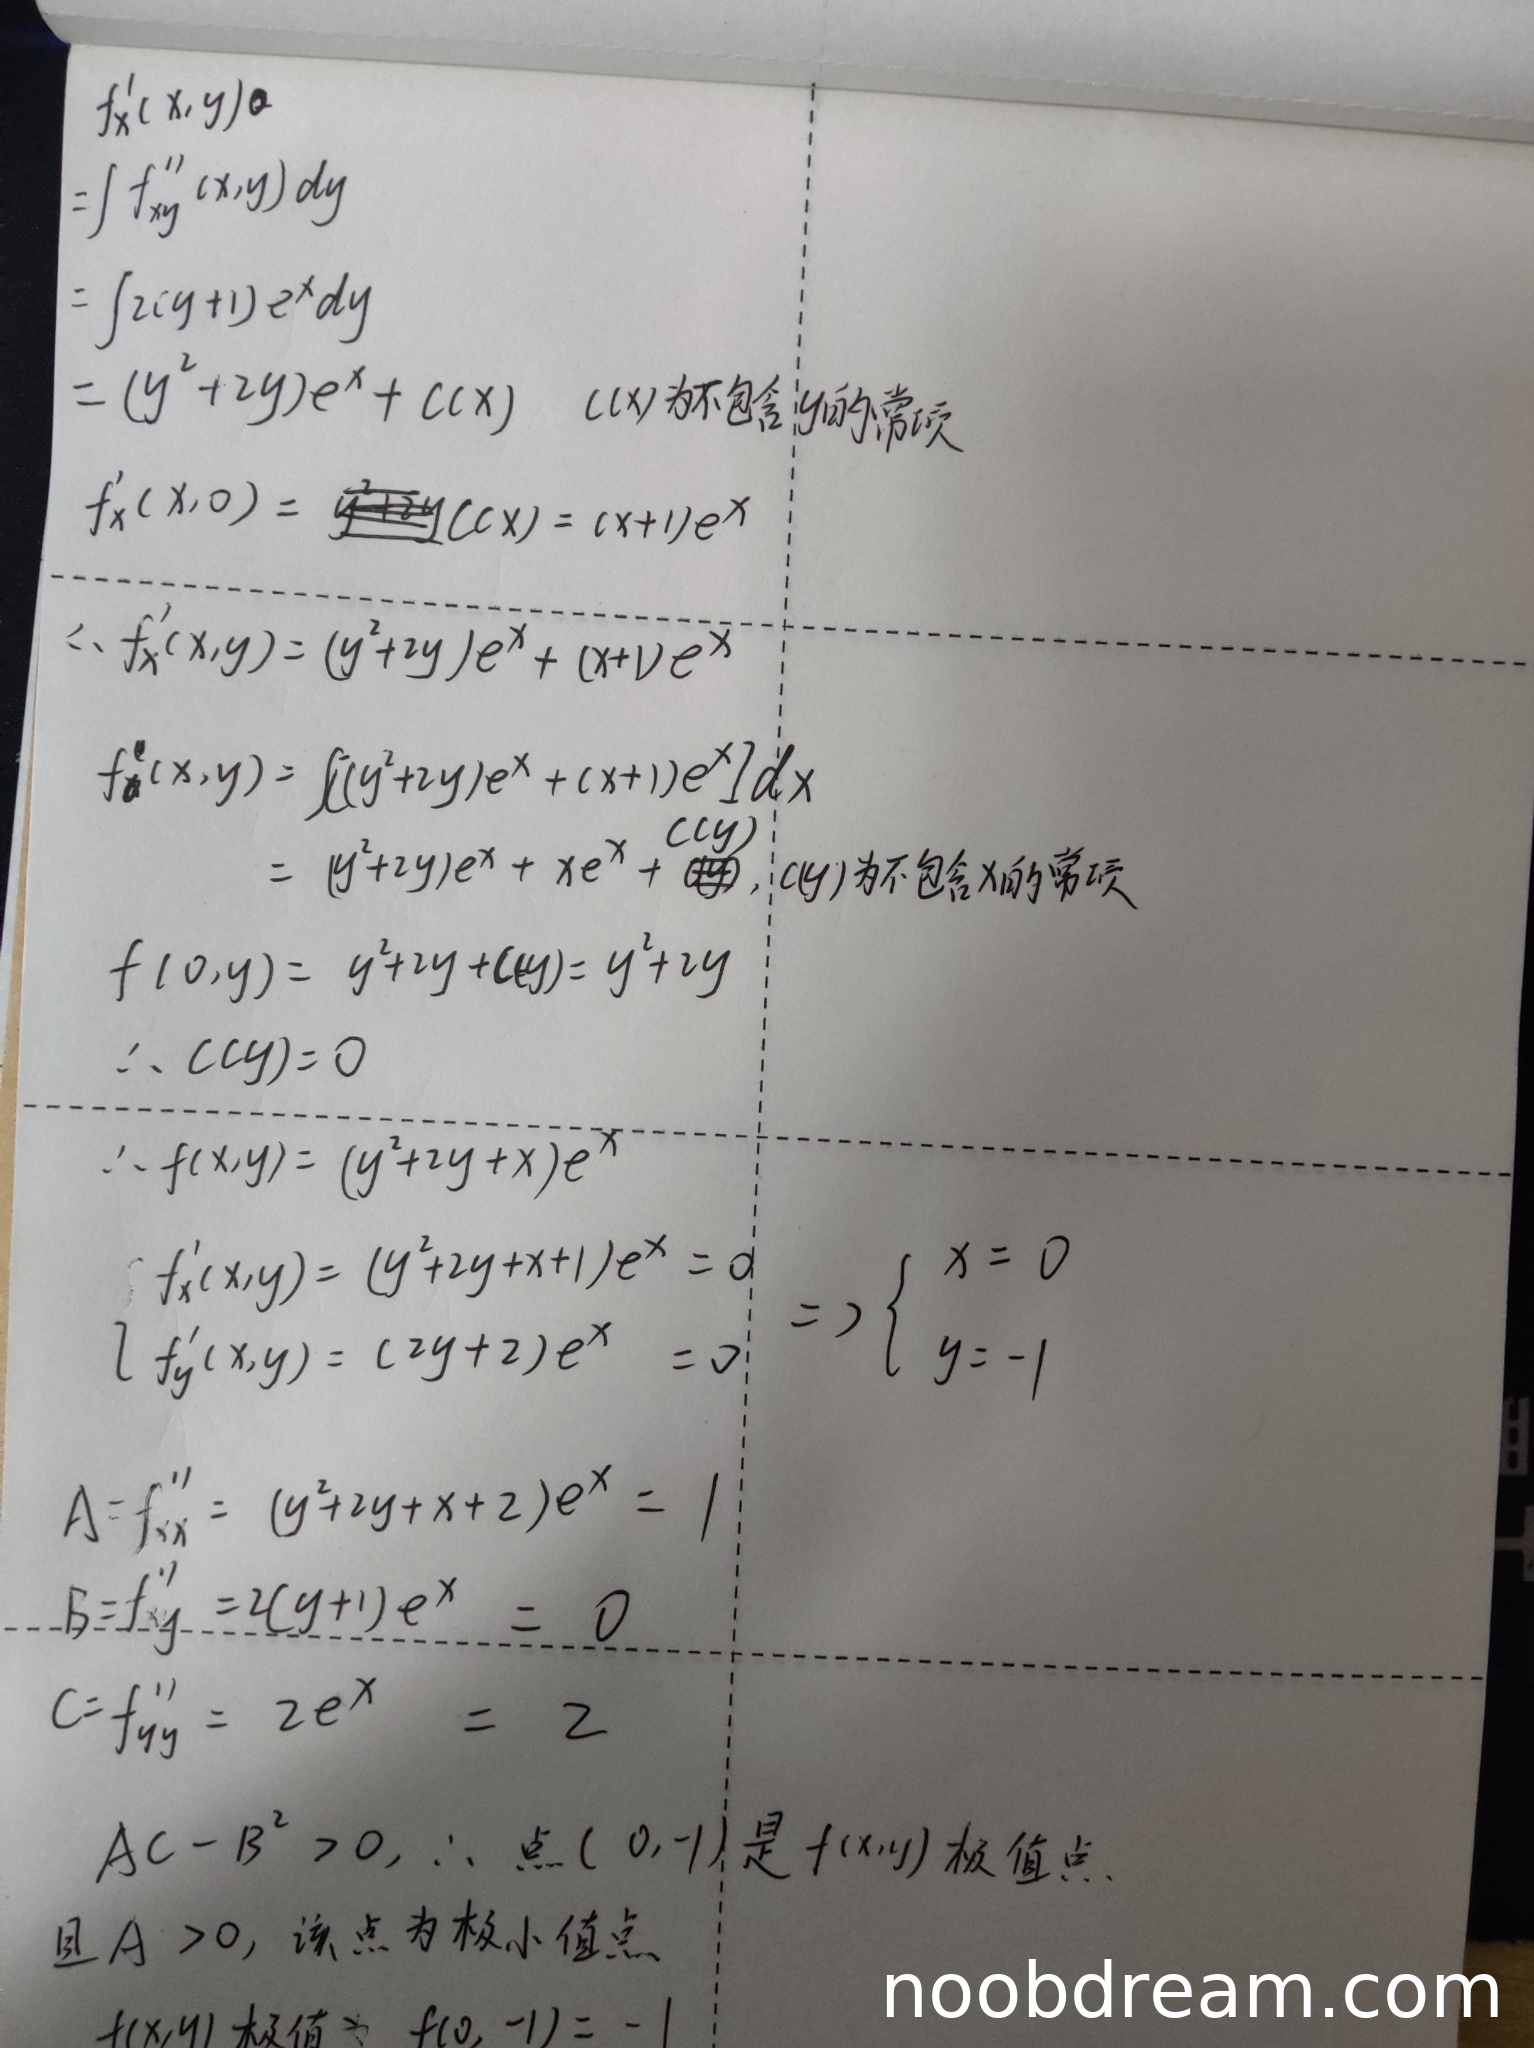 f'x(x,y)
=∫f''xy(x,y)dy
=∫2(y+1)e^x dy
=(y²+2y)e^x+C(x) C(x)为不包含y的常项
f'x(x,0)= C(x)=(x+1)e^x
∴f'x(x,y)=(y²+2y)e^x+(x+1)e^x
f(x,y)=∫[(y²+2y)e^x+(x+1)e^x]dx
=(y²+2y)e^x+xe^x+C(y),C(y)为不包含x的常项
f(0,y)=y²+2y+C(y)=y²+2y
∴C(y)=0
∴f(x,y)=(y²+2y+x)e^x
{f'x(x,y)=(y²+2y+x+1)e^x=0 => {x=0
f'y(x,y)=(2y+2)e^x=0 y=-1
A=f''xx=(y²+2y+x+2)e^x=1
B=f''xy=2(y+1)e^x=0
C=f''yy=2e^x=2
AC-B²>0,∴点(0,-1)是f(x,y)极值点.
且A>0,该点为极小值点
f(x,y)极值为f(0,-1)=-1
noobdream.com